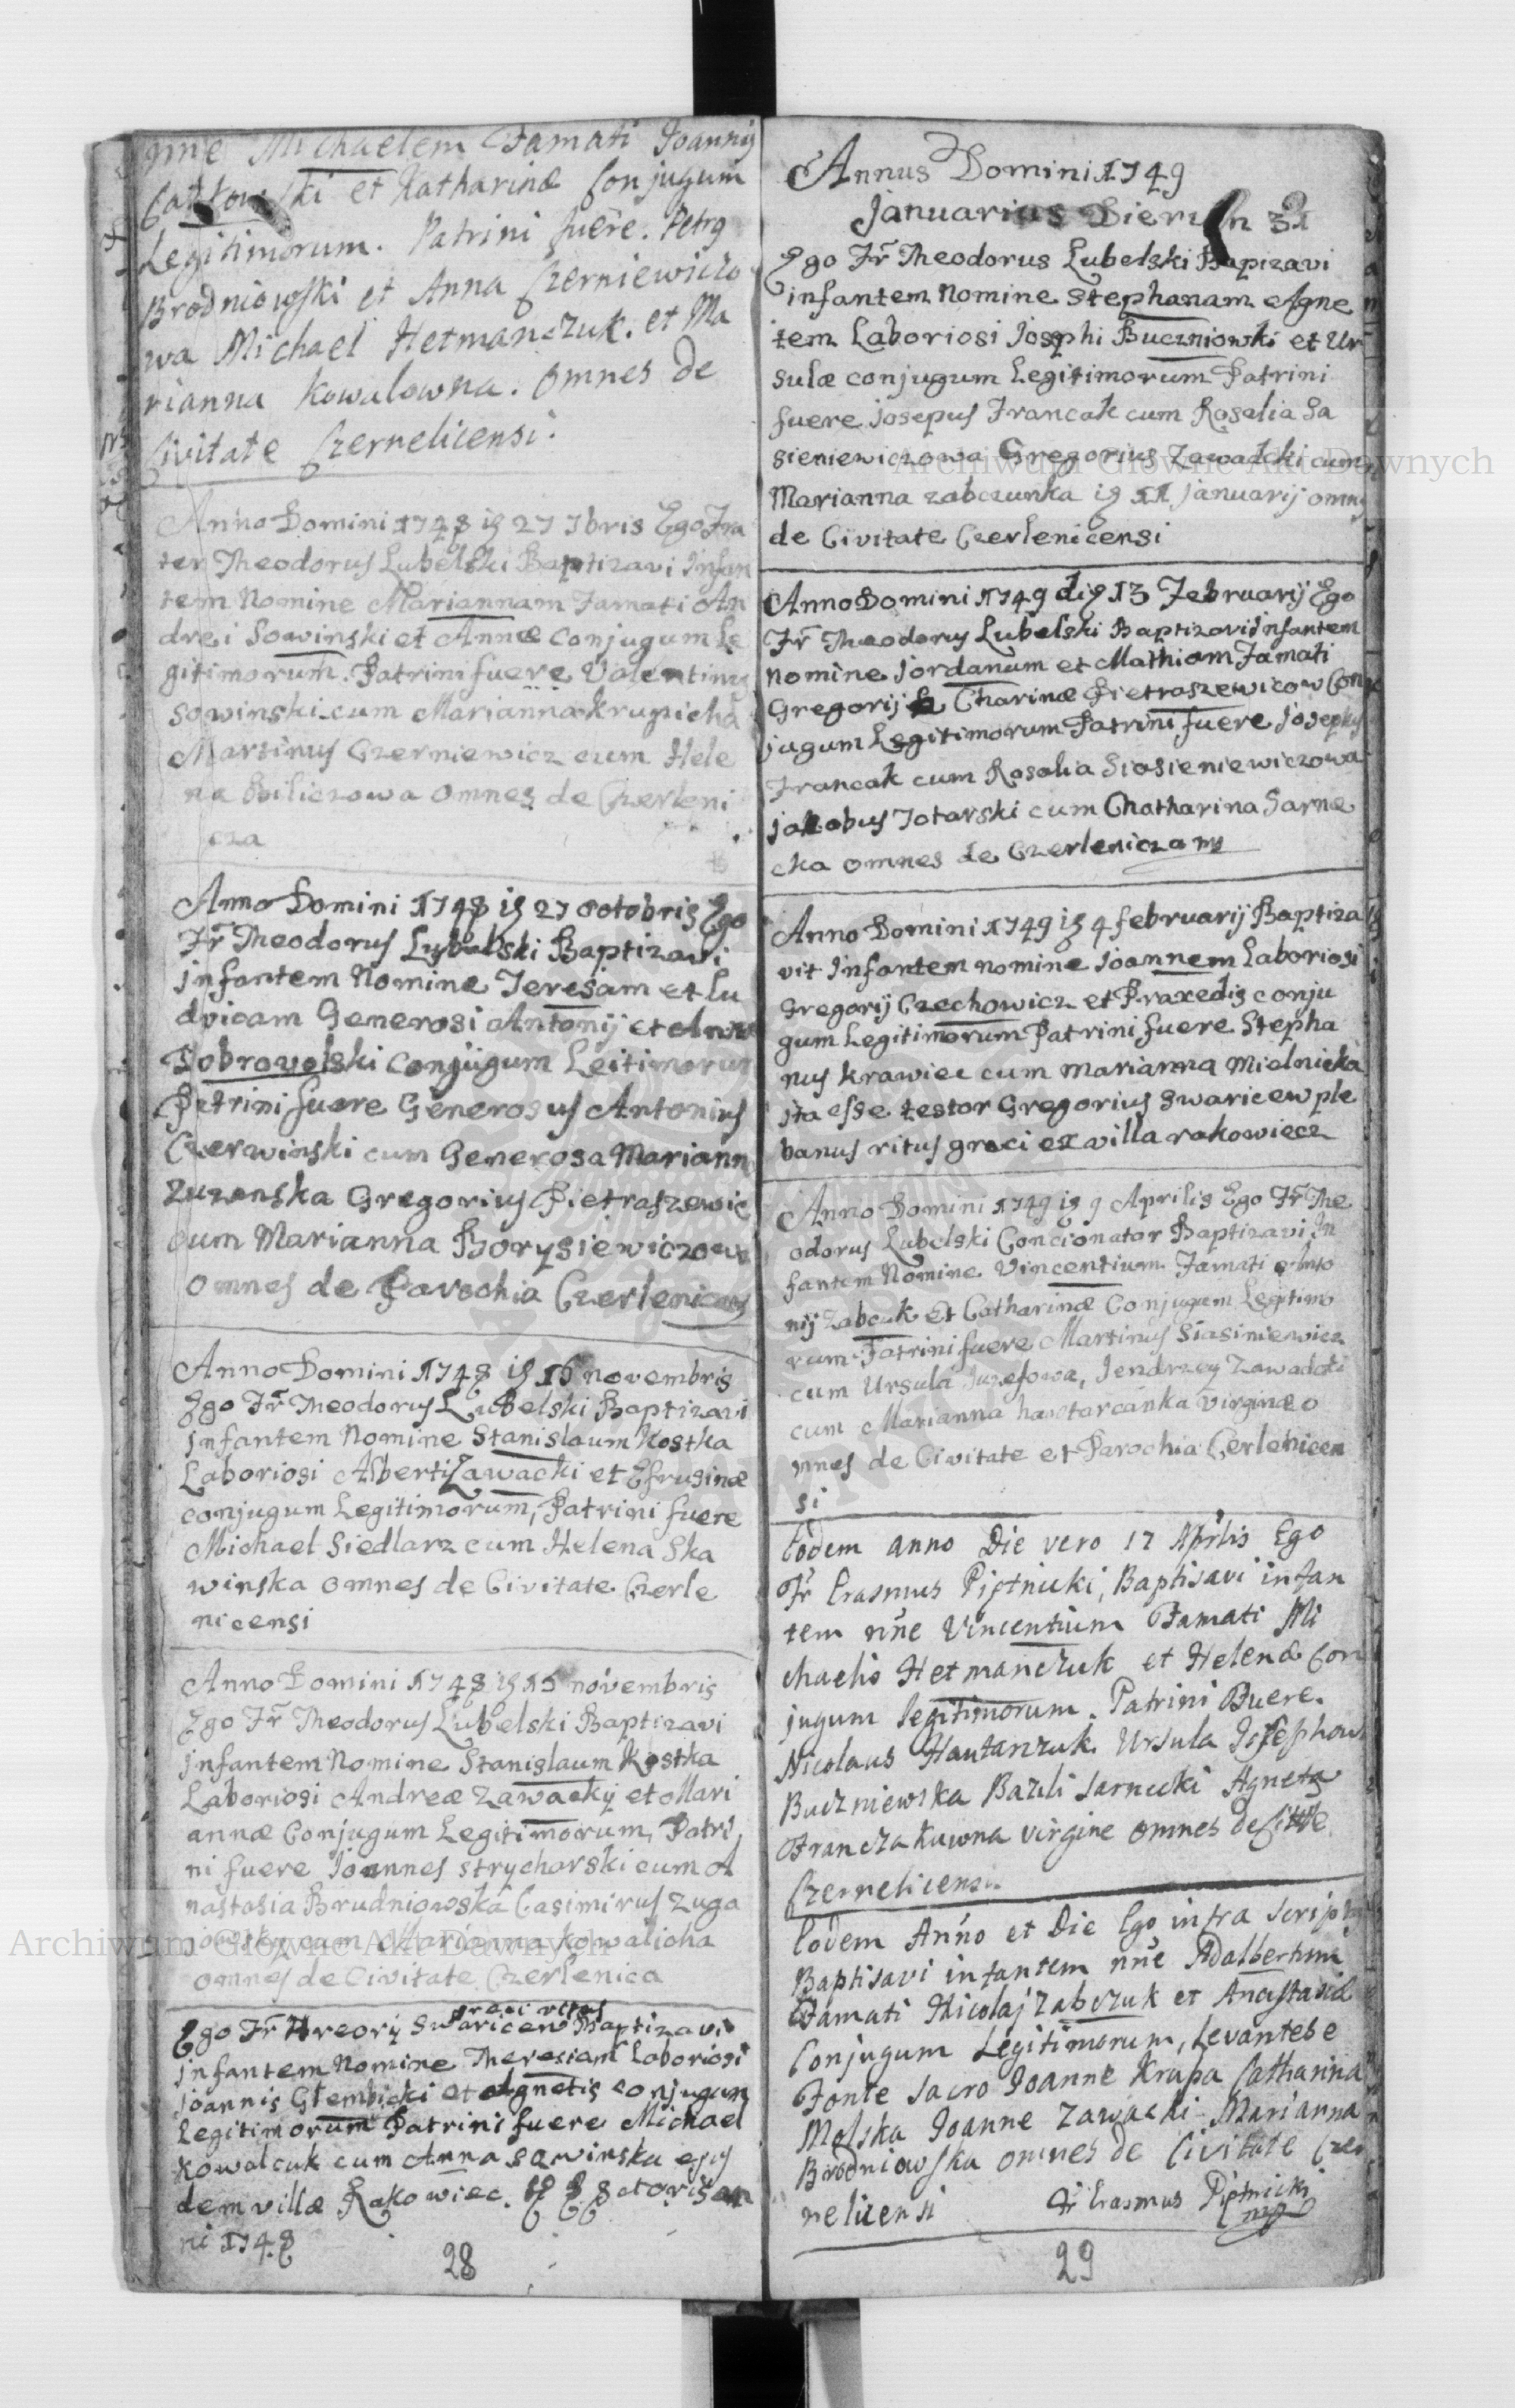 nıne Michaelem Famati Joannis
et Katharinæ Conjugum
Legitimorum. Patrini fuere. Petrg
Brodniowski et Anna Czerniewiczo
wa Michael Hetmanczuk. et Ma
rianna Kowalowna. omnes de
Civitate Czernelicensi.
Anno Domini 1748 ig 27 7bris Ego Fra
ter Theodorus Lubelski Baptizavi Infan
tem Nomine Mariannam Famati An
drei Sowinski et Annæ Conjugum Le
gitimorum. Patrini fuere Valentinus
Sowinski cum Marianna Krupicha
Martinus Czerniewicz cum Hele
na Biliczowa Omnes de Czerleni
cza
Anno Domini 1748 ig 27 octobris Ego
Fr Theodorus Lubelski Baptizavi
Infantem Nomine Teresiam et Lu
dvicam Generosi Antonij et Annæ
Dobrovolski Conjugum Leitimorum
Patrini fuere Generosus Antonius
Czerwinski cum Generosa Mariann
Zuzanska Gregorius Pietraszewic
cum Marianna Borysiewiczowa
Omnes de Parochia
Anno Domini 1748 ig 16 novembris
Ego Fr Theodorus Lubelski Baptizavi
Infantem Nomine Stanislaum Kostka
Laboriosi Alberti Zawacki et Efrusinæ
conjugum Legitimorum, Patrini fuere
Michael Siedlarz cum Helena Ska
winska omnes de Civitate Czerle
nicensi
Anno Domini 1748 ig 15 novembris
Ego Fr Theodorus Lubelski Baptizavi
Infantem Nomine Stanislaum Kostka
Laboriosi Andreæ Zawacky et Mari
annæ Conjugum Legitimorum, Patri
ni fuere Joannes Strycharski cum A
nastasia Brudniowska Casimirus Zuga
jowsky cum Marianna Kowalicha
omnes de Civitate Czerlenica
græci ritus
Ego Fr Hreory Swaricew Baptizavi
Infantem Nomine Theresiam Laboriosi
Joannis Glembicki et Agnetis conjugum
Legitimorum Patrini fuere Michael
Kowalcuk cum Anna Sawinska ejus
dem villæ Rakowiec.
ni 1748
28
Annus Domini 1749
Januarius Dierum 31
Ego Fr Theodorus Lubelski Bapizavi
infantem Nomine Stephanam Agne
tem Laboriosi Josephi Buczniowki et Ur
sulæ conjugum Legitimorum Patrini
fuere Josepus Francak cum Rosalia Sa
sieniewiczowa Gregorius Zawadcki cum
Marianna zabczunka ig 11 Januarij omnes
de Civitate Czerlenicensi
Anno Domini 1749 dig 13 Februarij Ego
Fr Theodorus Lubelski Baptizavi Infantem
nomine Jordanum et Mathiam Famati
Gregorij & Charinæ Pietraszewicow Con
jugum Legitimorum Patrini fuere Josephus
Francak cum Rosalia Siasieniewiczowa
Jakobus Totarski cum Chatharina Sarne
cka omnes de
Anno Domini 1749 ig 4 februarij Baptiza
vit Infantem nomine Joannem Laboriosi
Gregorij Czechowicz et Praxedis conju
gum Legitimorum Patrini fuere Stepha
nus Krawiec cum marianna Mielnicka
ita esse testor Gregorius Swaricew ple
banus ritus græci ex villa rakowiecz
Anno Domini 1749 ig 9 Aprilis Ego Fr The
odorus Lubelski Concionator Baptizavi In
fantem Nomine Vincentium Famati Anto
nij Zabcuk et Catharinæ Conjugum Legitimo
rum Patrini fuere Martinus Siasiniewicz
cum Ursula Juzefowa, Jendrzey Zawadcki
cum Marianna hawtarcanka virginæ o
mnes de Civitate et Parochia Cerlenicen
si
Eodem anno Die vero 17 Aprilis Ego
Fr Erasmus Piptnicki, Baptisavi infan
tem nne Vincentium Famati Mi
chaelis Hetmanczuk et Helenæ Con
jugum legitimorum. Patrini Fuere.
Nicolaus Hautarczuk Ursula Josephow
Buczniewska Bazili Sarnicki Agnets
Franczakuwna virgine omnes de
Czernelicensi
Eodem Anno et Die Ego infra scriptus
Baptisavi infantem nne Adalbertum
Famati Nicolaj Zabczuk et Anastasiæ
Conjugum Legitimorum, Levantebe
Fonte Sacro Joanne Krapa Catharina
Molska Joanne Zawacki Marianna
Brodniowska omnes de Civitate Czer
nelicensi Fr Erasmus Piptnicki
mp
29
Archiwum Główne Akt Dawnych
Archiwum Główne Akt Dawnych